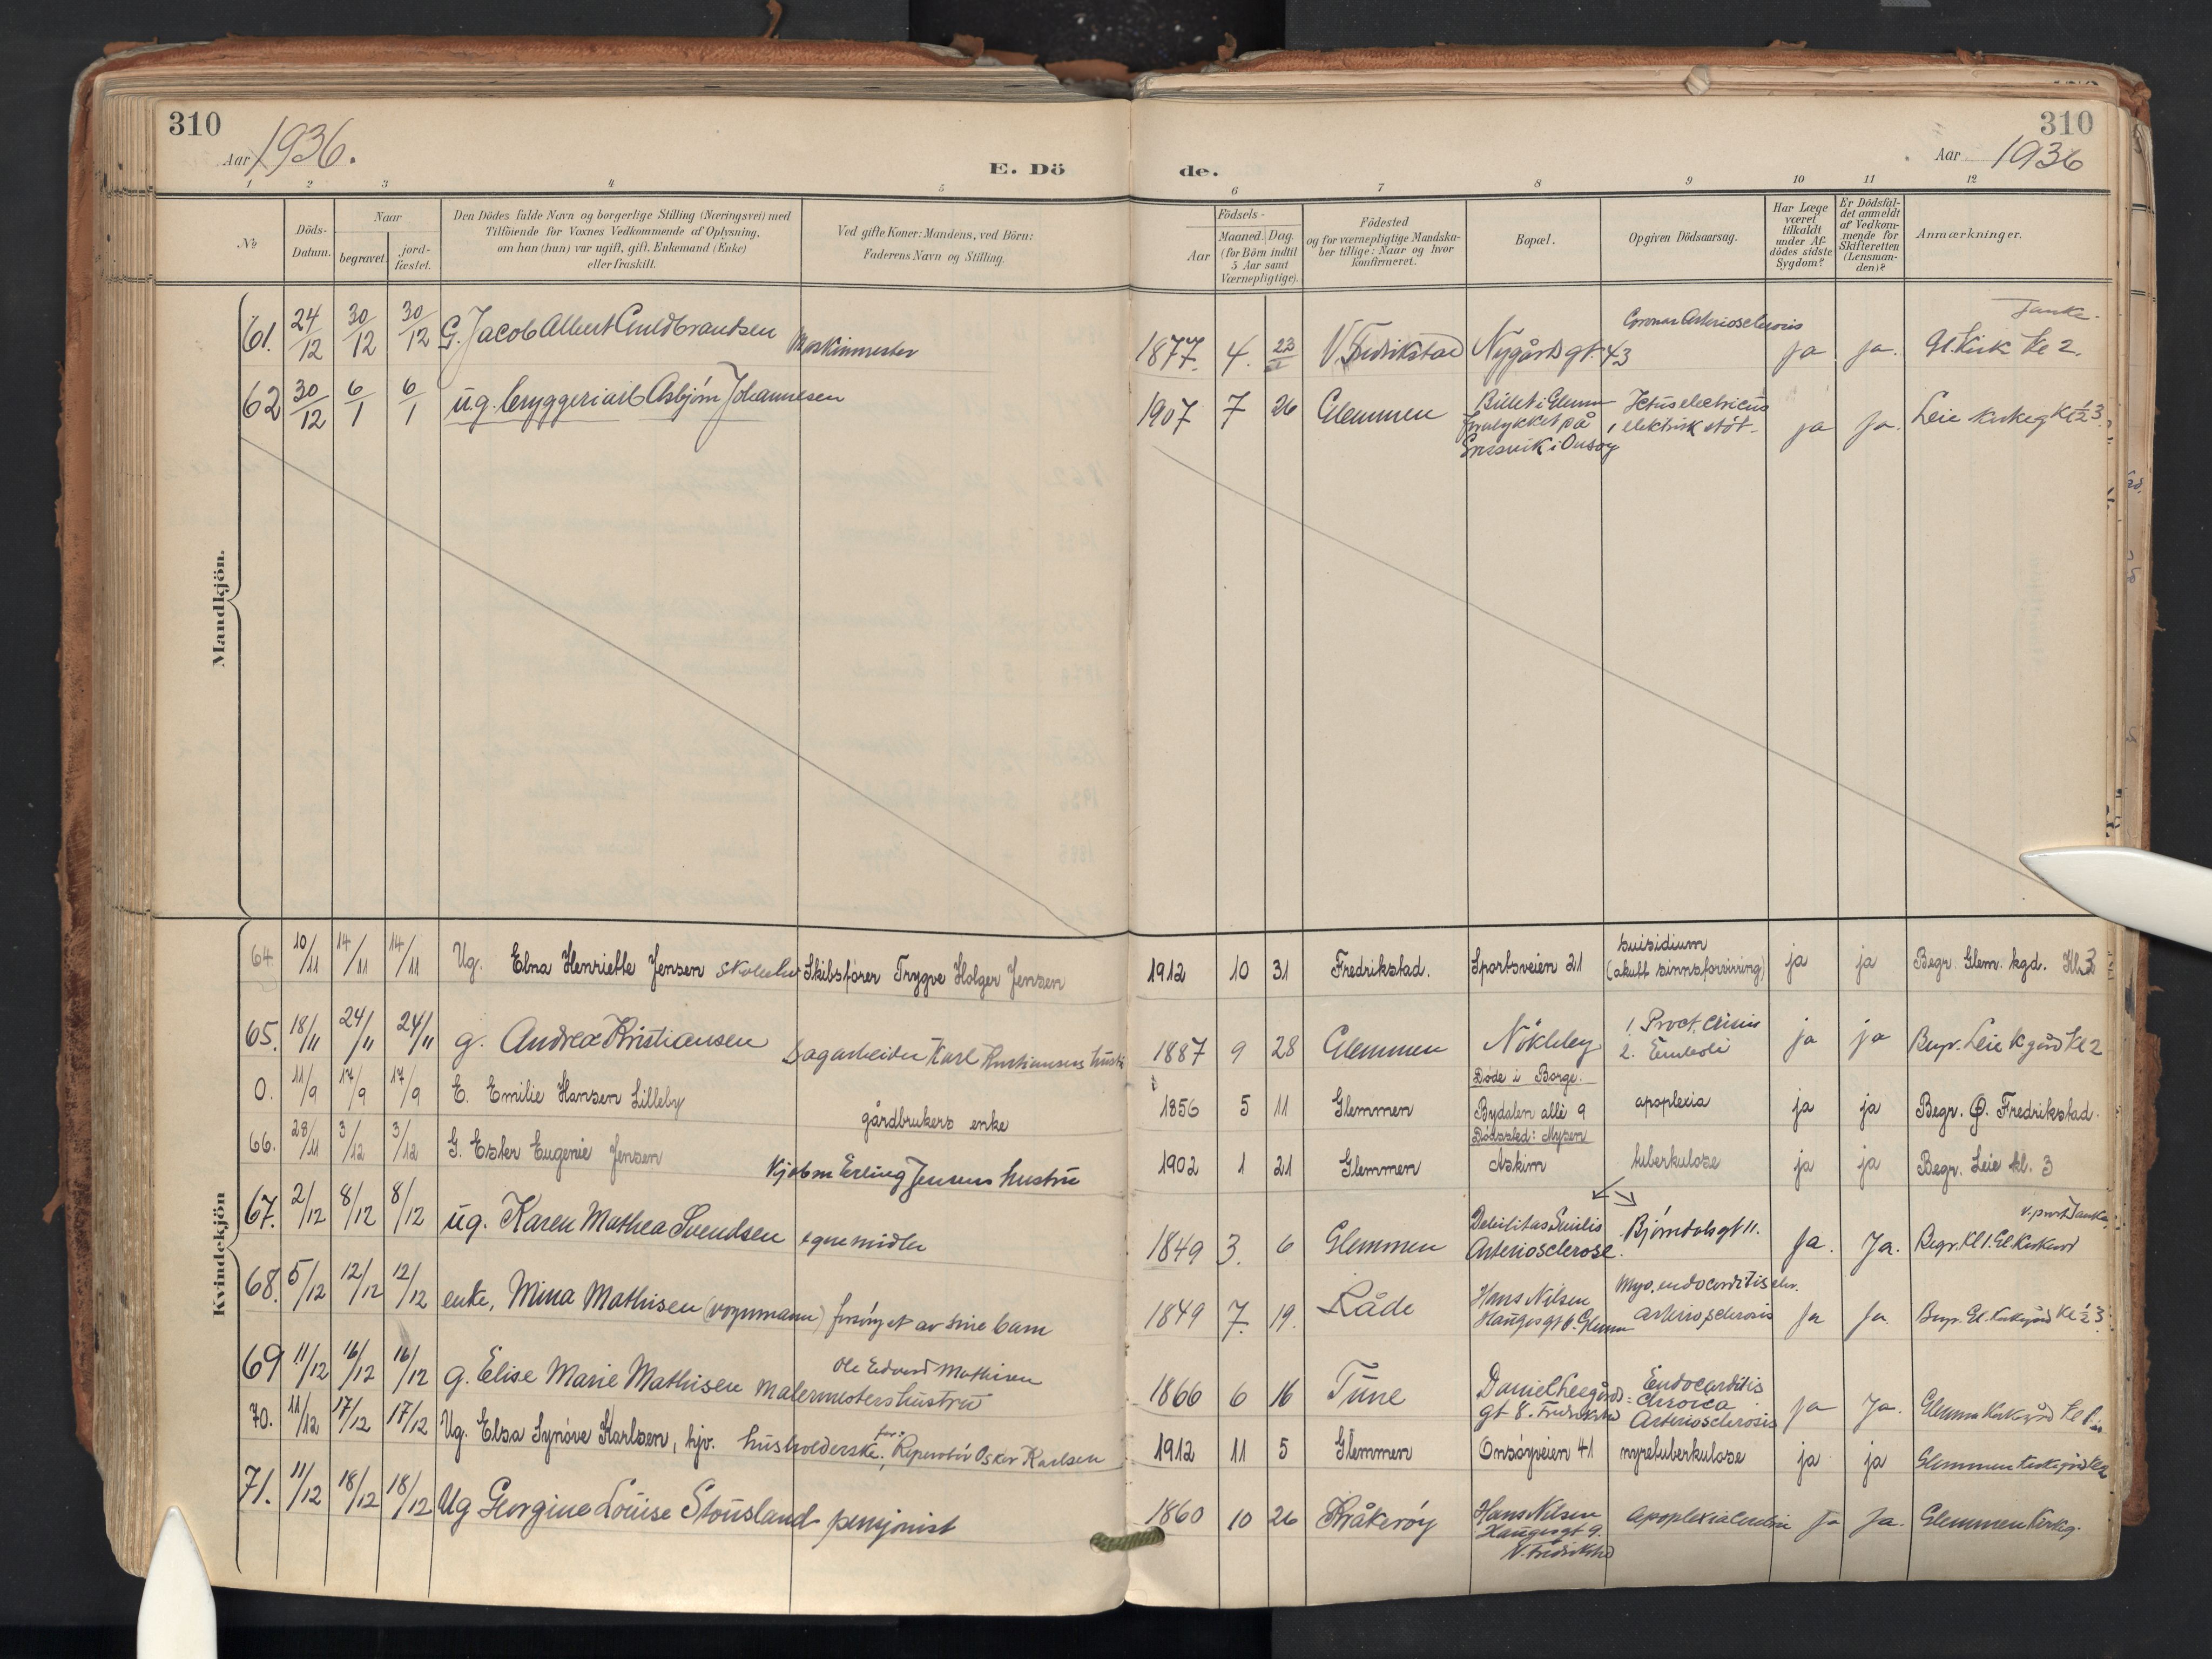 310
Aar 1936.
E. Dö
de.
Aar 1936
310
1 2 3 4 5 6 7 8 9 10 11 12
No
Döds-Datum.
Naar
begravet.
jord-fæstet.
Den Dödes fulde Navn og borgerlige Stilling (Næringsvei) med
Tilföiende for Voxnes Vedkommende af Oplysning,
om han (hun) var ugift, gift, Enkemand (Enke)
eller fraskilt.
Ved gifte Koner: Mandens, ved Börn:
Faderens Navn og Stilling.
Födsels-
Aar
Maaned. Dag.
(for Börn indtil
5 Aar samt
Værnepligtige).
Födested
og for værnepligtige Mandska-
ber tillige: Naar og hvor
konfirmeret.
Bopæl.
Opgiven Dödsaarsag.
Har Læge
været
tilkaldt
under Af-
dödes sidste
Sygdom?
Er Dödsfal-
det anmeldt
af Vedkom-
mende for
Skifteretten
(Lensman-
den)?
Anmærkninger.
Mandkjön.
61. 24/12 30/12 30/12 G. Jacob Albert Guldbrandsen Maskinmester 1877. 4. 23 V. Fredrikstad Nygårds gt 43 Coronar Arteriosclerosis ja ja. Gl. Kirk kl 2.
62 30/12 6/1 6/1 u.g. bryggeriarb Asbjörn Johannesen 1907 7 26 Glemmen Billet i Glemm
forulykket på
i Onsøy Ictus electricus
elektrisk støt ja ja. Leie kirkeg kl ½3
Kvindekjön
64. 10/11 14/11 14/11 Ug. Elna Henriette Jensen Skibsfører Trygve Holger Jensen 1912 10 31 Fredrikstad. Sportsveien 21 suisidium
(akutt sinnsforvirring) ja ja Begr. Glem. kgd. Kl. 3
65. 18/11 24/11 24/11 g. Andrea Kristiansen Sagarbeider Karl Kristiansens hustr 1887 9 28 Glemmen Nökleby 1.
2. Emboli ja ja Begr. Leie K gård Kl 2
0. 11/9 17/9 17/9 E. Emilie Hansen Lilleby gårdbrukers enke 1856 5 11 Glemmen Döde i Borge.
Bydalen allè 9 apoplexia ja ja Begr. Ø. Fredrikstad.
66. 28/11 3/12 3/12 G. Ester Eugenie Jensen Kjøbm Erling Jensens hustru 1902 1 21 Glemmen Dödssted: Mysen
Askim tuberkulose ja ja Begr. Leie kl. 3
67. 2/12 8/12 8/12 ug. Karen Mathea Svendsen egne midler 1849 3. 6 Glemmen Debilitas Senilis
Arteriosclerose. Björndalsgt 11. Ja. Ja. Begr. Kl 1. Gl. Kirkeg
68. 5/12 12/12 12/12 enke, Mina Mathisen (vognmann) forsörget av sine barn 1849 7. 19. Råde Hans Nilsen
Hauges gt 6. Glemm Myo. endocarditis chr.
arteriosclerosis Ja Ja. Begr. Gl. Kirkegård Kl ½3
69 11/12 16/12 16/12 g. Elise Marie Mathisen Ole Edvard Mathisen
Malermesters hustru 1866 6 16 Tune Daniel Leegårds-
gt 8. Fredrikstad Endocarditis
Chronica
Arteriosclerosis ja Ja. Glemm Kirkegård
70. 11/12 17/12 17/12 Ug. Elsa Synöve Karlsen, hjv. husholderske. far: Reparatör Oskar Karlsen 1912 11 5 Glemmen Onsöyveien 41 nyretuberkulose ja ja Glemmen Kirkegård kl 2
71. 11/12 18/12 18/12 Ug Georgine Louise Stousland pensjonist 1860 10 26 Kråkeröy Hans Nilsen
Haugesgt 9.
V. Fredrikstad Apoplexia Cerebri Ja Ja. Glemmen Kirkeg.